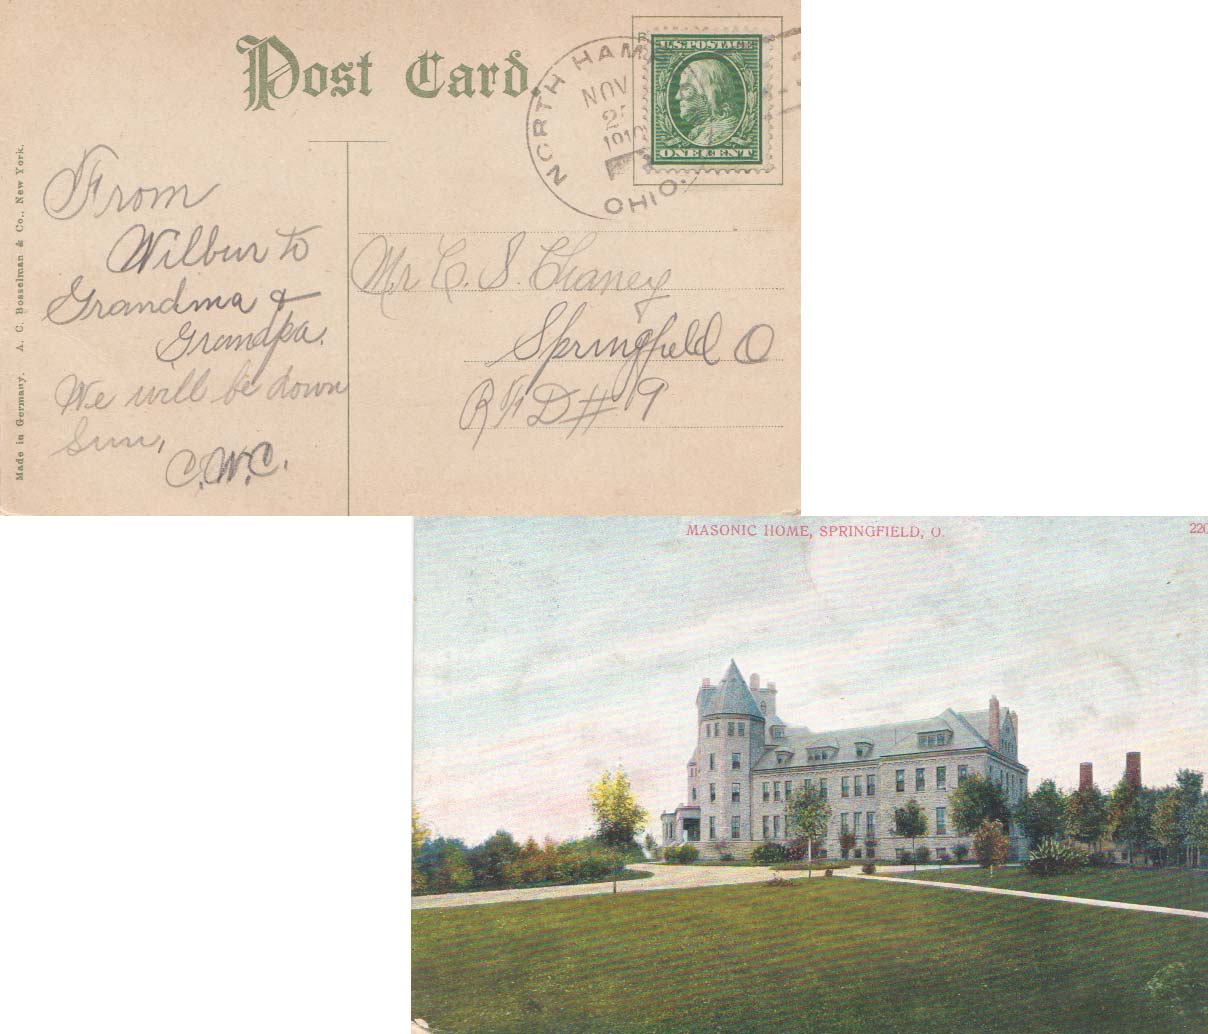 Post Card.
NORTH HAM
NOV
1910
OHIO.
U.S. POSTAGE
ONE CENT
Made in Germany. A. C. Bosselman & Co., New York.
From
Wilbur to
Grandma &
Grandpa.
We will be down
Sun,
C.W.C.
Mr C. S. Chaney
Springfield O
R F D # 9
MASONIC HOME, SPRINGFIELD, O.
220